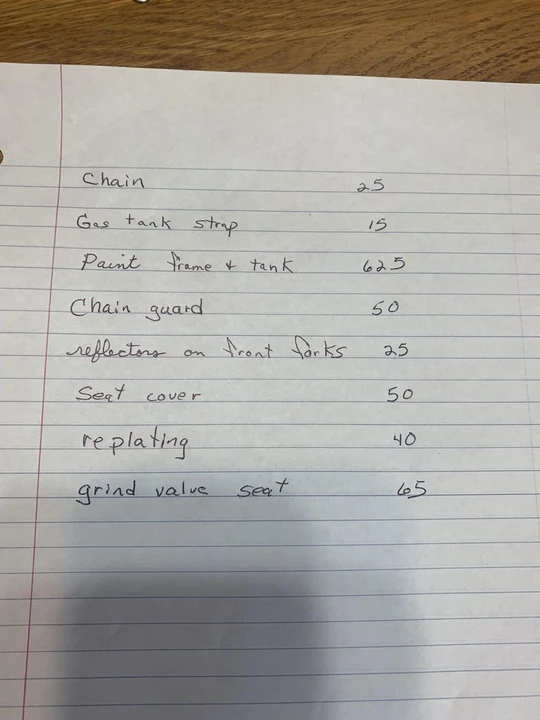 Chain 25
Gas tank strap 15
Paint frame & tank 625
Chain guard 50
reflectors on front forks 25
Seat cover 50
replating 40
grind value seat 65